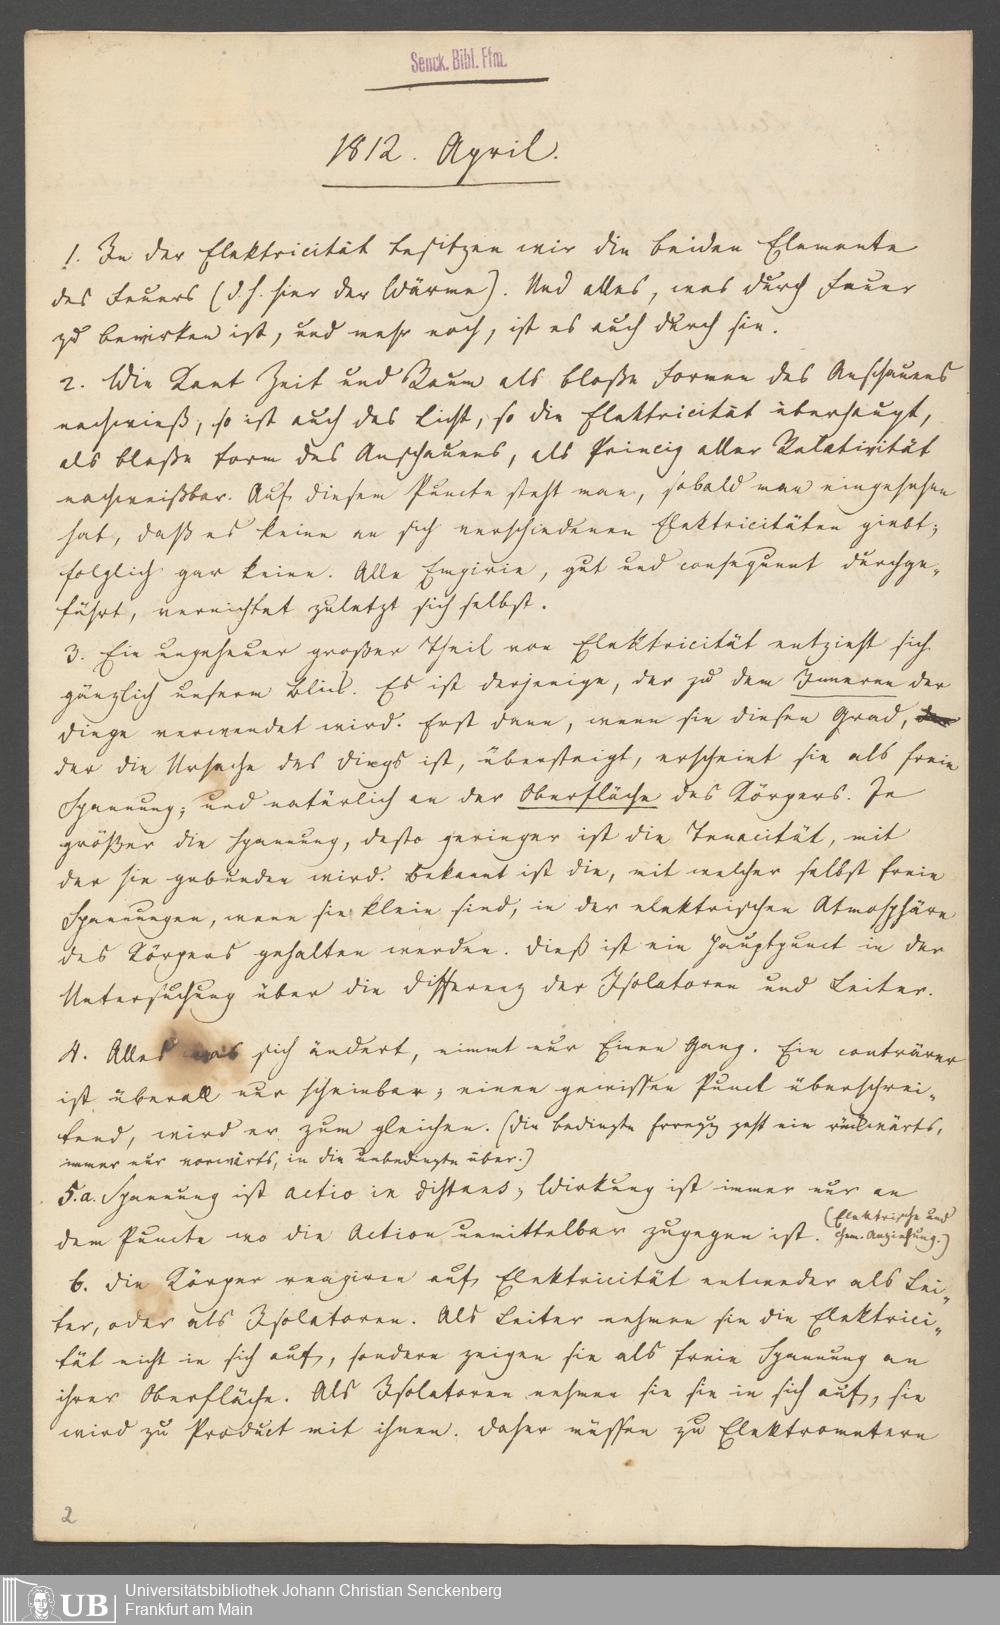 Senck. Bibl. Ffm.
1812. April.
1. In der Elektricität besitzen wir die beiden Elemente
des Feuers (d. h. hier der Wärme). Und alles, was durch Feuer
zu bewirken ist, und mehr noch, ist es auch durch sie.
2. Wie Kant Zeit und Raum als bloße Formen des Anschauens
nachwieß, so ist auch das Licht, so die Elektricität überhaupt,
als bloße Form des Anschauens, als Princip aller Relativität
nachweißbar. Auf diesem Puncte steht man, sobald man eingesehen
hat, daß es keine an sich verschiedenen Elektricitäten giebt;
folglich gar keine. Alle Empirie, gut und consequent durchge„
führt, vernichtet zuletzt sich selbst.
3. Ein ungeheuer großer Theil von Elektricität entzieht sich
gänzlich unserm Blick. Es ist derjenige, der zu dem Inneren der
Dinge verwendet wird. Erst dann, wenn sie diesen Grad,
der die Ursache des Dings ist, übersteigt, erscheint sie als freie
Spannung; und natürlich an der Oberfläche des Körpers. Je
größer die Spannung, desto geringer ist die Tenacität, mit
der sie gebunden wird. Bekannt ist die, mit welcher selbst freie
Spannungen, wenn sie klein sind, in der elektrischen Atmosphäre
des Körpers gehalten werden. Dieß ist ein Hauptpunct in der
Untersuchung über die Differenz der Isolatoren und Leiter.
4. Alles was sich ändert, nimmt nur Einen Gang. Ein conträrer
ist überall nur scheinbar; einen gewissen Punct überschrei„
tend, wird er zum gleichen. (Die bedingte geht ein rückwärts,
immer nur vorwärts, in die unbedingte über.)
5.a. Spannung ist actio in distans; Wirkung ist immer nur an
dem Puncte wo die Action unmittelbar zugegen ist. (Elektrische und
chem. Anziehung.)
6. Die Körper reagiren auf Elektricität entweder als Lei„
ter, oder als Isolatoren. Als Leiter nehmen sie die Elektrici„
tät nicht in sich auf, sondern zeigen sie als freie Spannung an
ihrer Oberfläche. Als Isolatoren nehmen sie sie in sich auf, sie
wird zu Product mit ihnen. Daher müssen zu Elektrometern
2
UB
Universitätsbibliothek Johann Christian Senckenberg
Frankfurt am Main